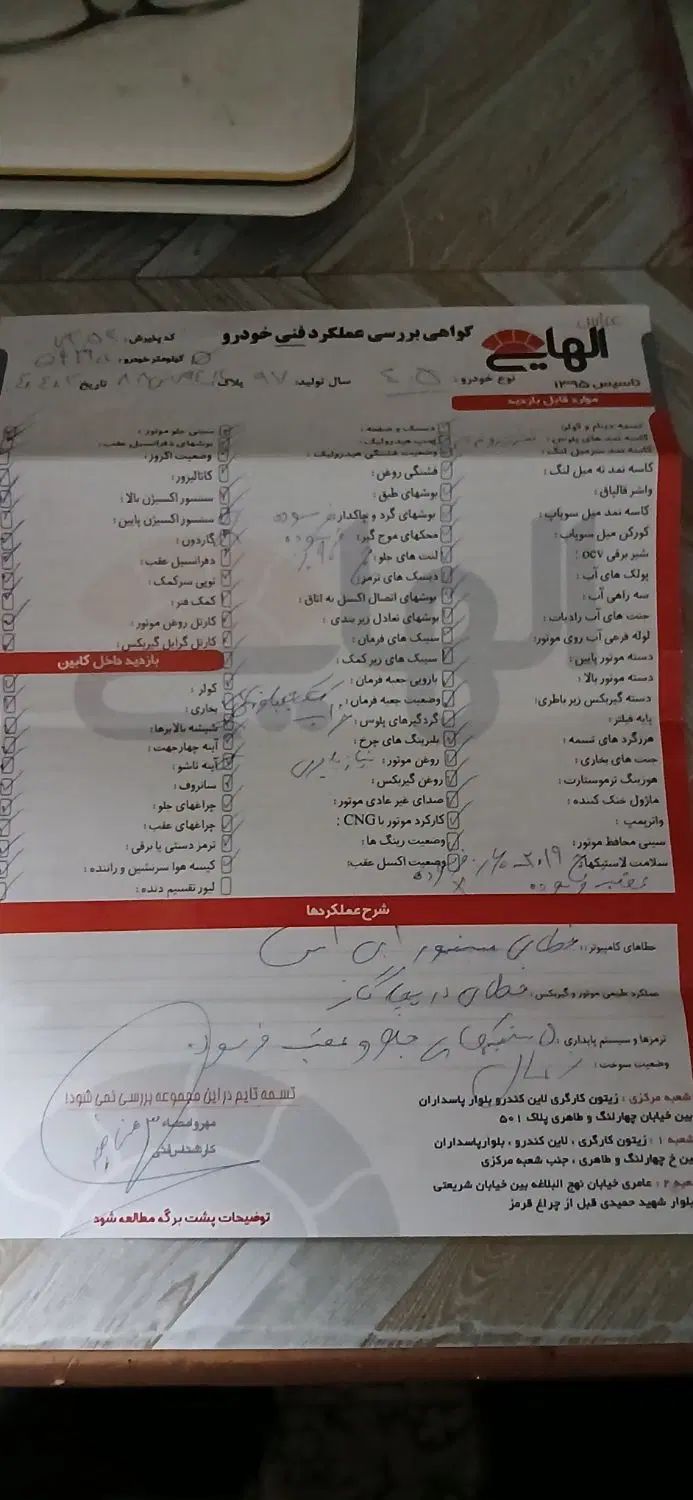 گواهی بررسی عملکرد فنی خودرو
الهایی
تاسیس ۱۳۹۵
کد پذیرش:
کیلومتر خودرو:
نوع خودرو: سال تولید: ۹۷ پلاک تاریخ
موارد قابل بازدید
تسمه دینام و کولر:
کاسه نمد های پلوس:
کاسه نمد سرمیل لنگ:
کاسه نمد ته میل لنگ:
واشر قالپاق:
کاسه نمد میل سوپاپ:
کورکن میل سوپاپ:
شیر برقی OCV:
پولک های آب:
سه راهی آب:
جنت های آب رادیات:
لوله فرعی آب روی موتور:
دسته موتور پایین:
دسته موتور بالا:
دسته گیربکس زیر باطری:
پایه فیلتر:
هرزگرد های تسمه:
جنت های بخاری:
هوزینگ ترموستارت:
ماژول خنک کننده:
واترپمپ:
سینی محافظ موتور:
سلامت لاستیکها: ۲۰۱۹
عقب فرسوده
دیسک و صفحه:
پمپ هیدرولیک:
وضعیت فشنگی هیدرولیک:
فشنگی روغن:
بوشهای طبق:
بوشهای گرد و چاکدار: فرسوده
محکهای موج گیر:
لنت های جلو:
دیسک های ترمز:
بوشهای اتصال اکسل به اتاق:
بوشهای تعادل زیر بندی:
سیبک های فرمان:
سیبک های زیر کمک:
بازویی جعبه فرمان:
وضعیت جعبه فرمان:
گردگیرهای پلوس:
بلبرینگ های چرخ:
روغن موتور:
روغن گیربکس:
صدای غیر عادی موتور:
کارکرد موتور با CNG:
وضعیت رینگ ها:
وضعیت اکسل عقب:
سینی جلو موتور:
بوشهای دفرانسیل عقب:
وضعیت اگزوز:
کاتالیزور:
سنسور اکسیژن بالا:
سنسور اکسیژن پایین:
گاردون:
دفرانسیل عقب:
توپی سرکمک:
کمک فنر:
کارتل روغن موتور:
کارتل گرابل گیربکس:
بازدید داخل کابین
کولر:
بخاری:
شیشه بالابرها:
آینه چهارجهت:
آینه تاشو:
سانروف:
چراغهای جلو:
چراغهای عقب:
ترمز دستی یا برقی:
کیسه هوا سرنشین و راننده:
لیور تقسیم دنده:
شرح عملکردها
خطاهای کامپیوتر: خطای سنسور ای بی اس
عملکرد طبیعی موتور و گیربکس: خطای دریچه گاز
ترمزها و سیستم پایداری: دیسکهای جلو و عقب فرسوده
وضعیت سوخت: نرمال
تسمه تایم در این مجموعه بررسی نمی شود!
مهر و امضاء
کارشناس فنی
شعبه مرکزی: زیتون کارگری لاین کندرو بلوار پاسداران
بین خیابان چهارلنگ و طاهری پلاک ۵۰۱
شعبه ۱: زیتون کارگری، لاین کندرو، بلوارپاسداران
بین خ چهارلنگ و طاهری، جنب شعبه مرکزی
شعبه ۲: عامری خیابان نهج البلاغه بین خیابان شریعتی
بلوار شهید حمیدی قبل از چراغ قرمز
توضیحات پشت برگه مطالعه شود